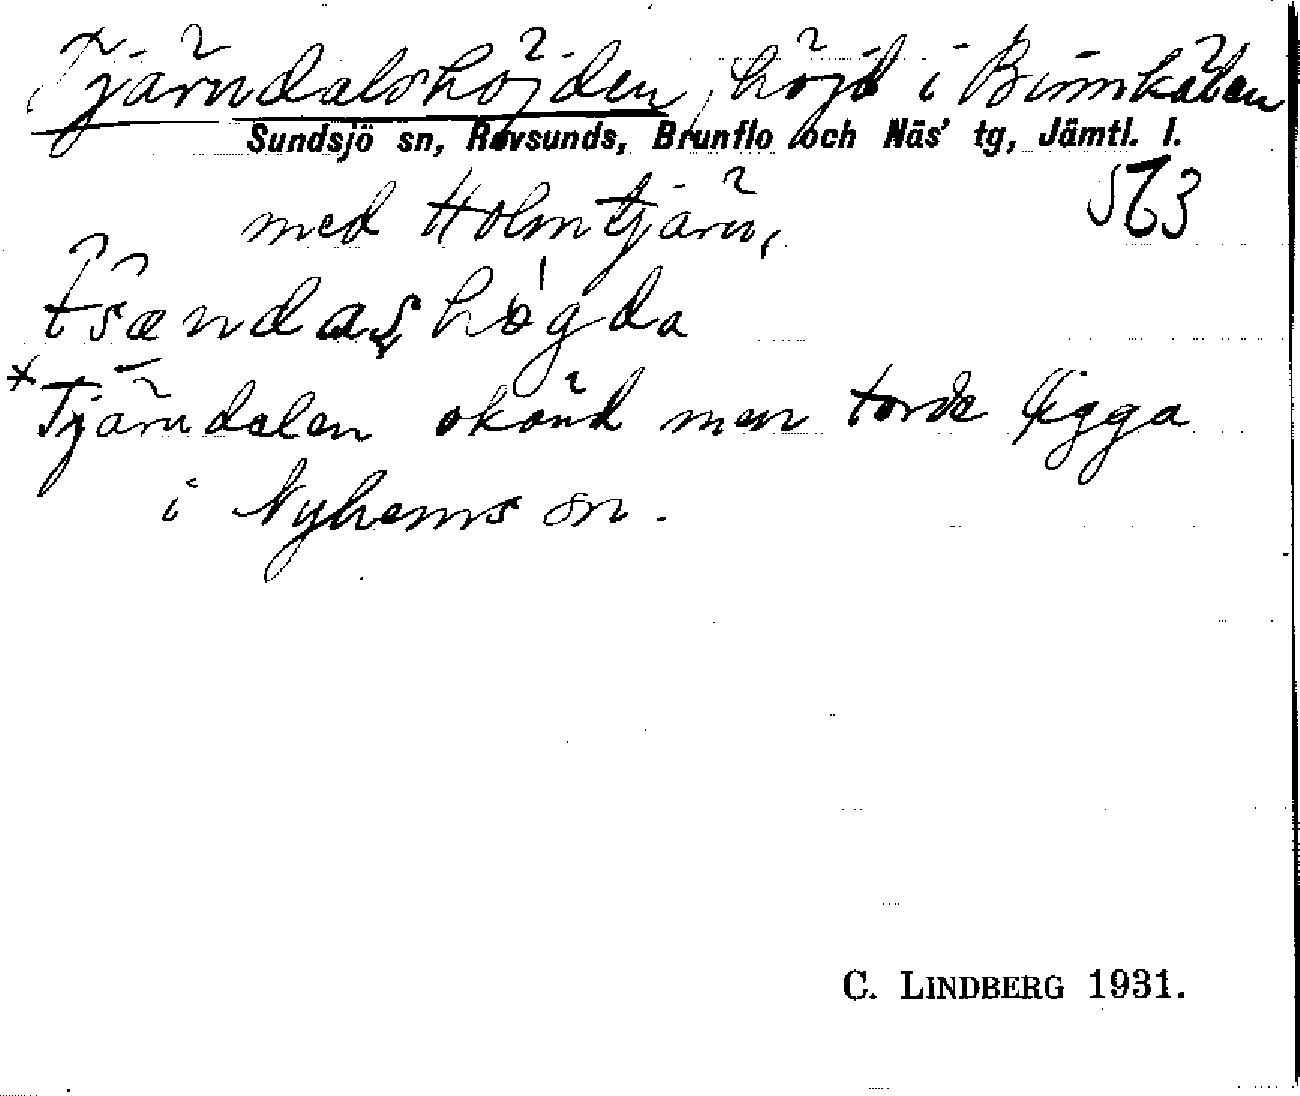 Tjärndalshöjden, höjd i Binnkälen
Sundsjö sn, Revsunds, Brunflo och Näs' tg, Jämtl. l.
med Holmtjärn,
563
tsændaʂhøgda
*Tjärndalen okänd men torde ligga
i Nyhems sn.
C. LINDBERG 1931.